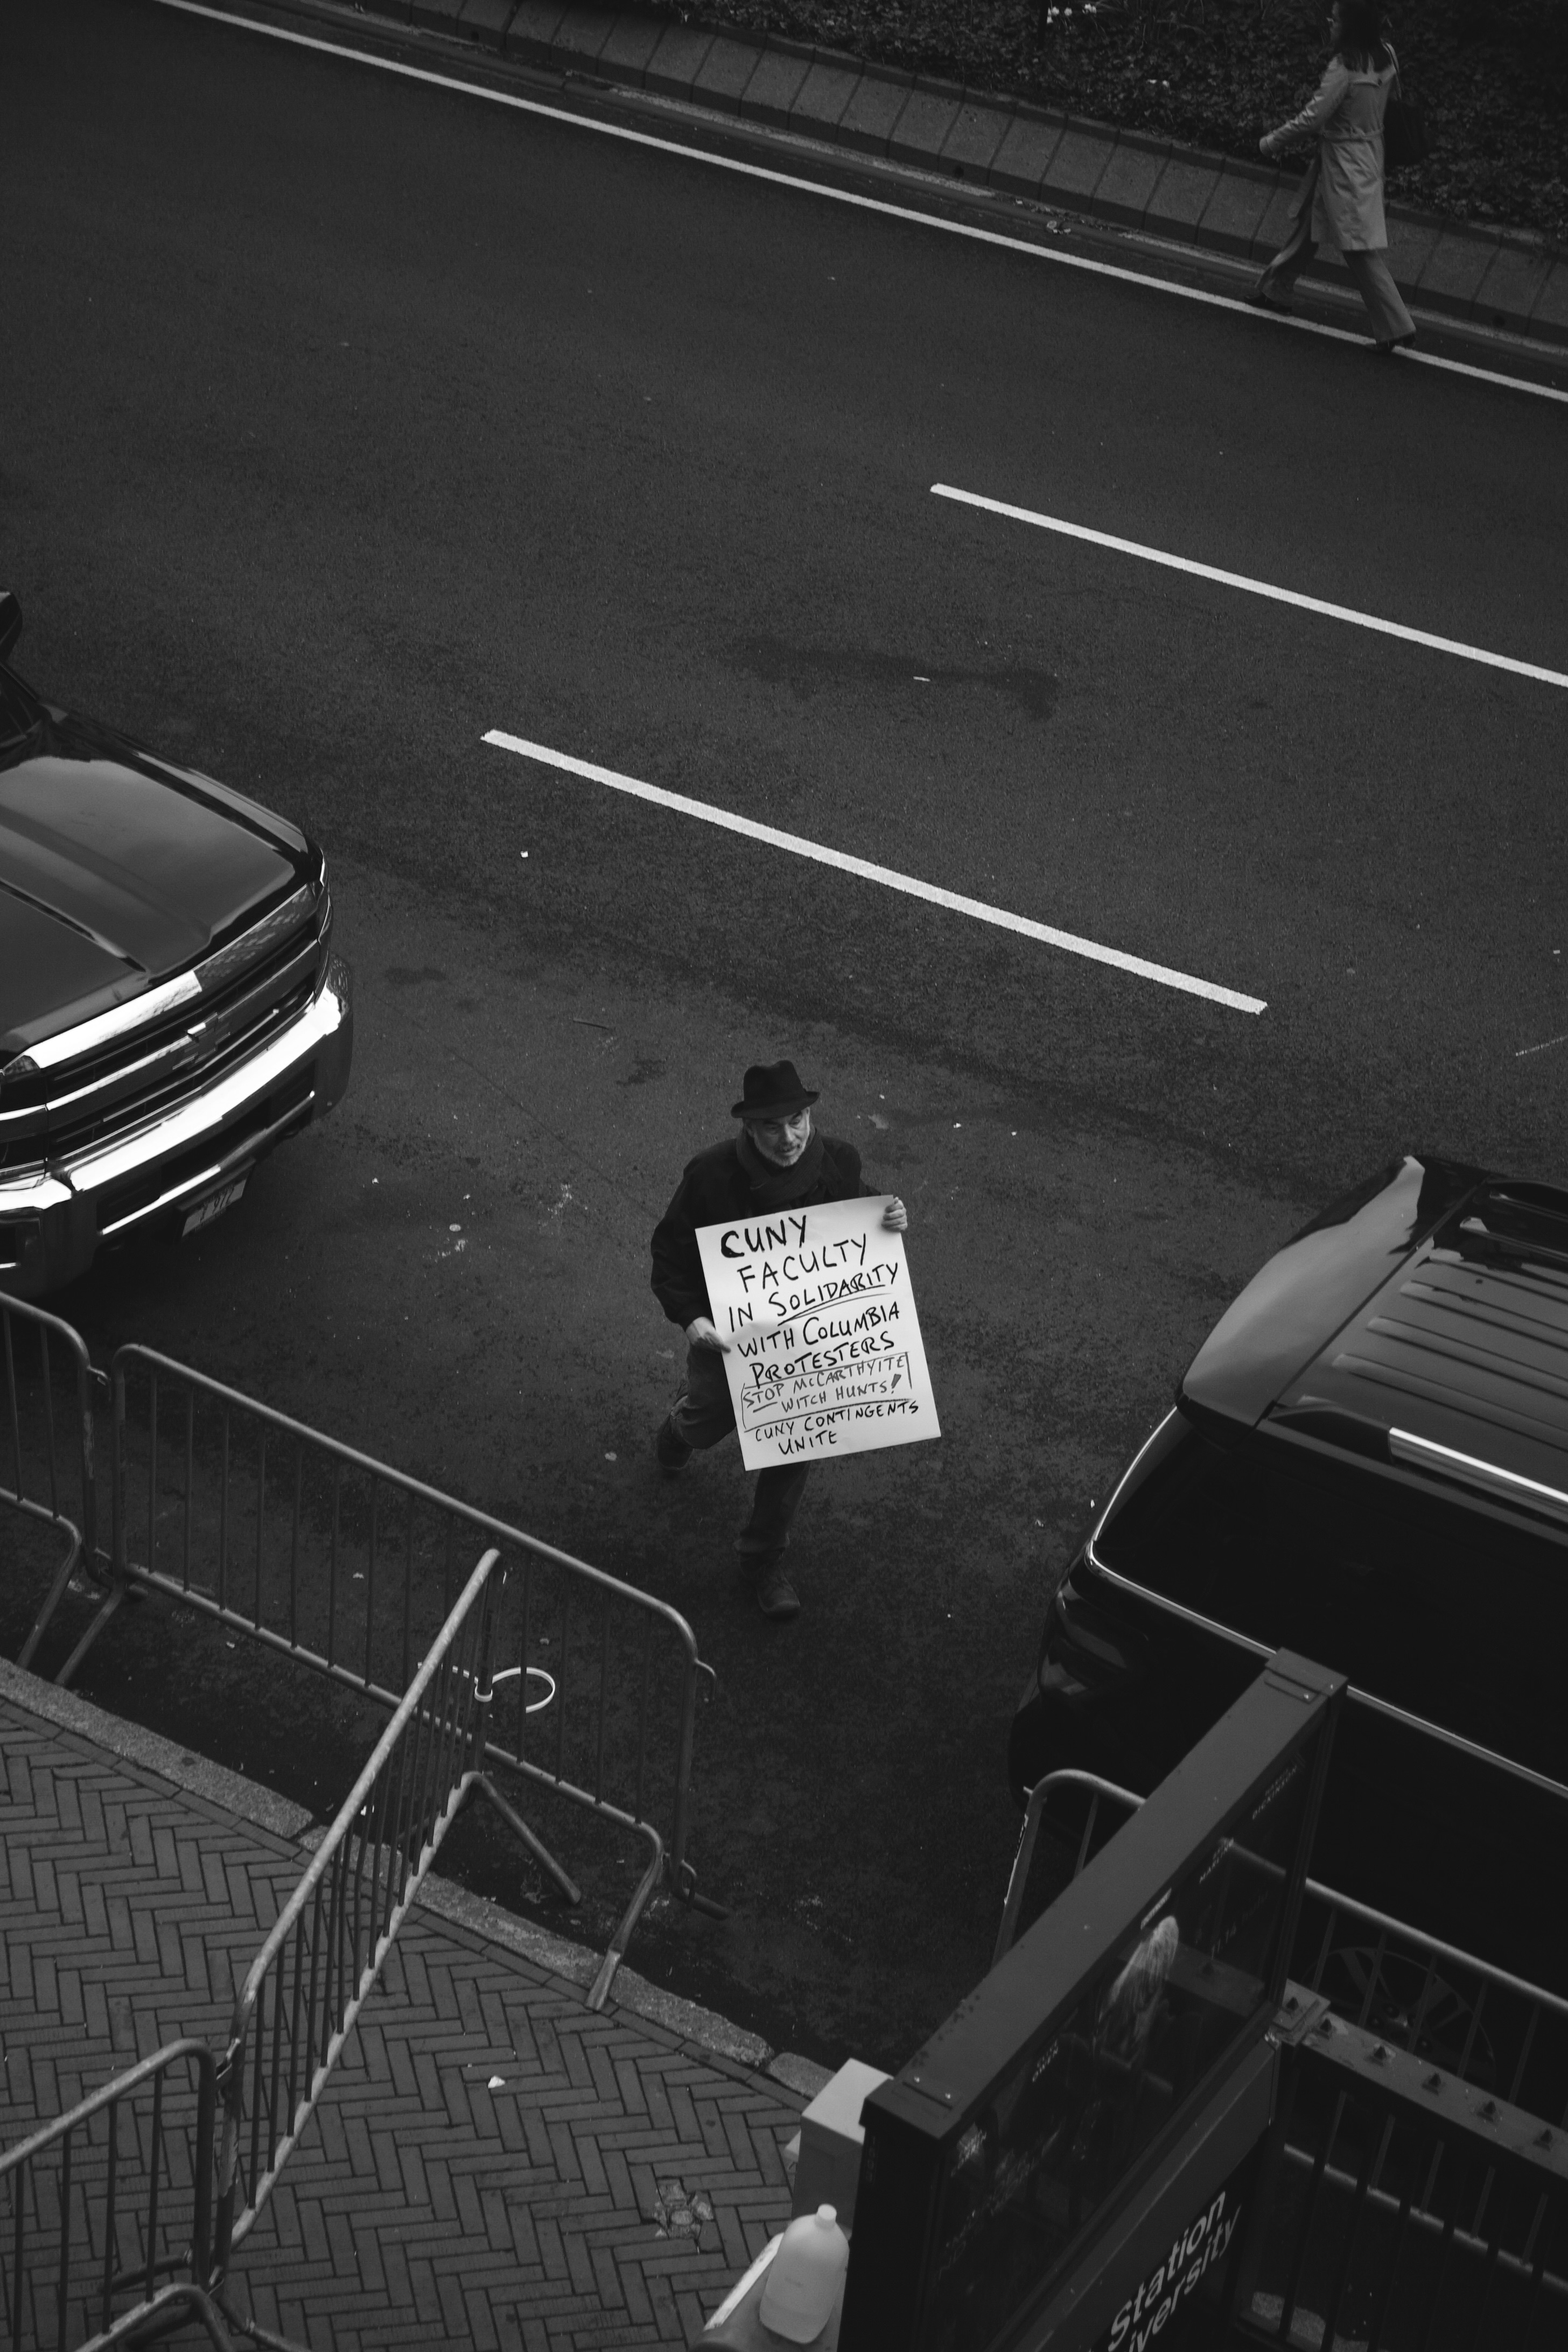 CUNY
FACULTY
IN SOLIDARITY
WITH COLUMBIA
PROTESTERS
STOP MCCARTHYITE
WITCH HUNTS!
CUNY CONTINGENTS
UNITE
Station